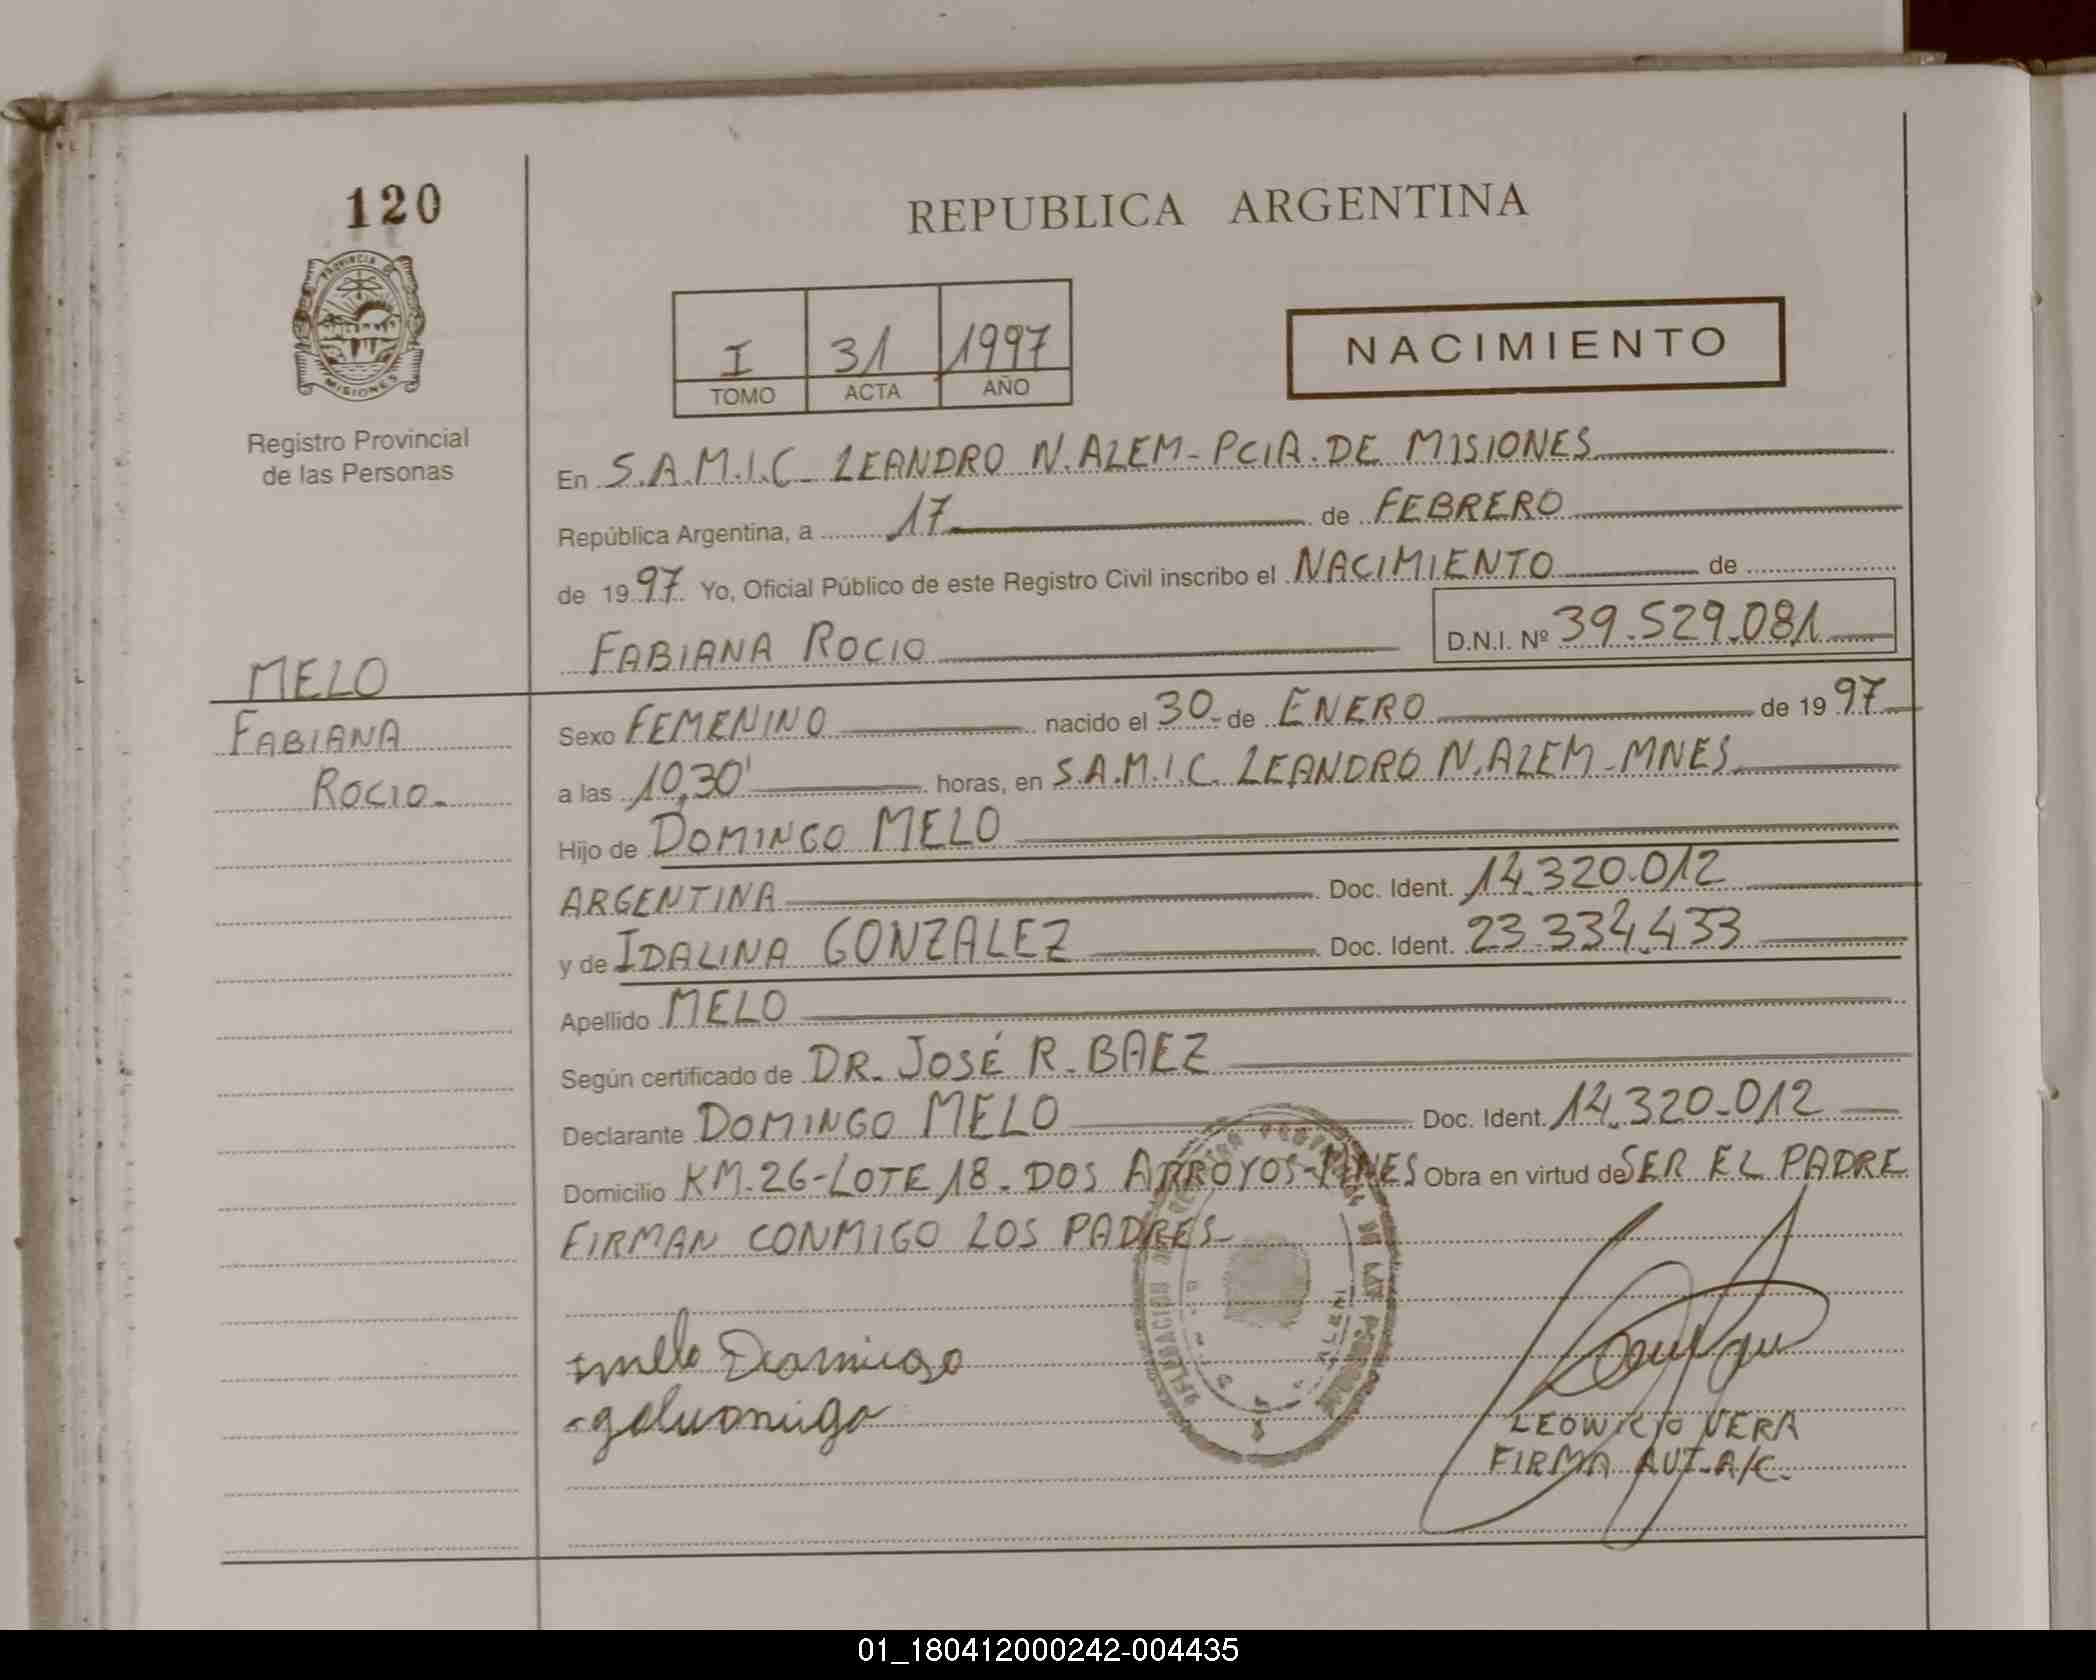 120
PROVINCIA DE
MISIONES
Registro Provincial
de las Personas
MELO
FABIANA
ROCIO.
REPUBLICA ARGENTINA
I 31 1997
TOMO ACTA AÑO
NACIMIENTO
En S.A.M.I.C. LEANDRO N. ALEM - PCIA. DE MISIONES
República Argentina, a 17 de FEBRERO
de 1997 Yo, Oficial Público de este Registro Civil inscribo el NACIMIENTO de
FABIANA ROCIO D.N.I. Nº 39.529.081
Sexo FEMENINO nacido el 30 - de ENERO de 1997
a las 10,30' horas, en S.A.M.I.C. LEANDRO N. ALEM - MNES.
Hijo de DOMINGO MELO
ARGENTINA Doc. Ident. 14.320.012
y de IDALINA GONZALEZ Doc. Ident. 23.334.433
Apellido MELO
Según certificado de DR. JOSÉ R. BAEZ
Declarante DOMINGO MELO Doc. Ident. 14.320.012
Domicilio KM. 26 - LOTE 18 - DOS ARROYOS - MNES Obra en virtud de SER EL PADRE
FIRMAN CONMIGO LOS PADRES -
Domingo
LEOWICIO VERA
FIRMA AUT. A/C.
01_180412000242-004435